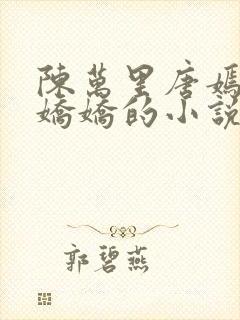 陳萬里唐嫣
嬌嬌的小說
郭碧燕